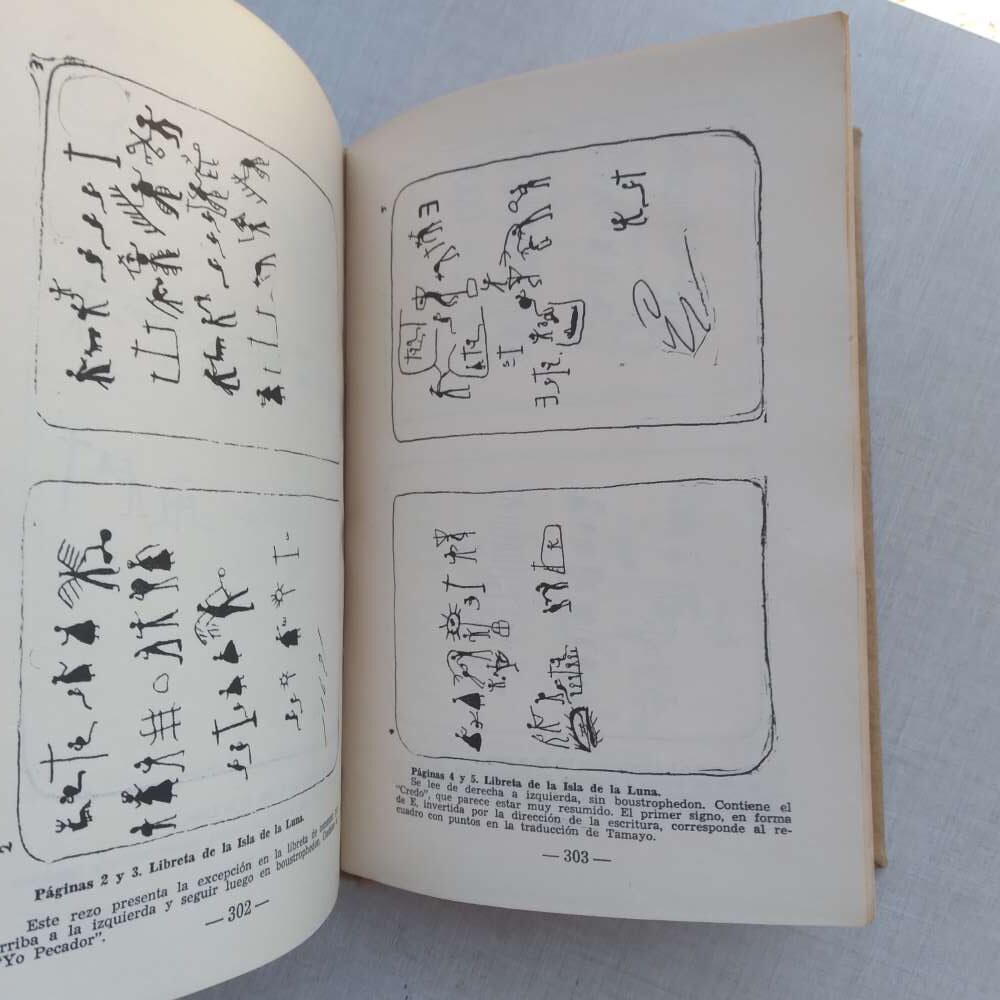 2
Páginas 2 y 3. Libreta de la Isla de la Luna.
Este rezo presenta la excepción en la libreta de
rriba a la izquierda y seguir luego en boustrophedon.
"Yo Pecador".
— 302 —
Páginas 4 y 5. Libreta de la Isla de la Luna.
Se lee de derecha a izquierda, sin boustrophedon. Contiene el
"Credo", que parece estar muy resumido. El primer signo, en forma
de E, invertida por la dirección de la escritura, corresponde al re-
cuadro con puntos en la traducción de Tamayo.
— 303 —